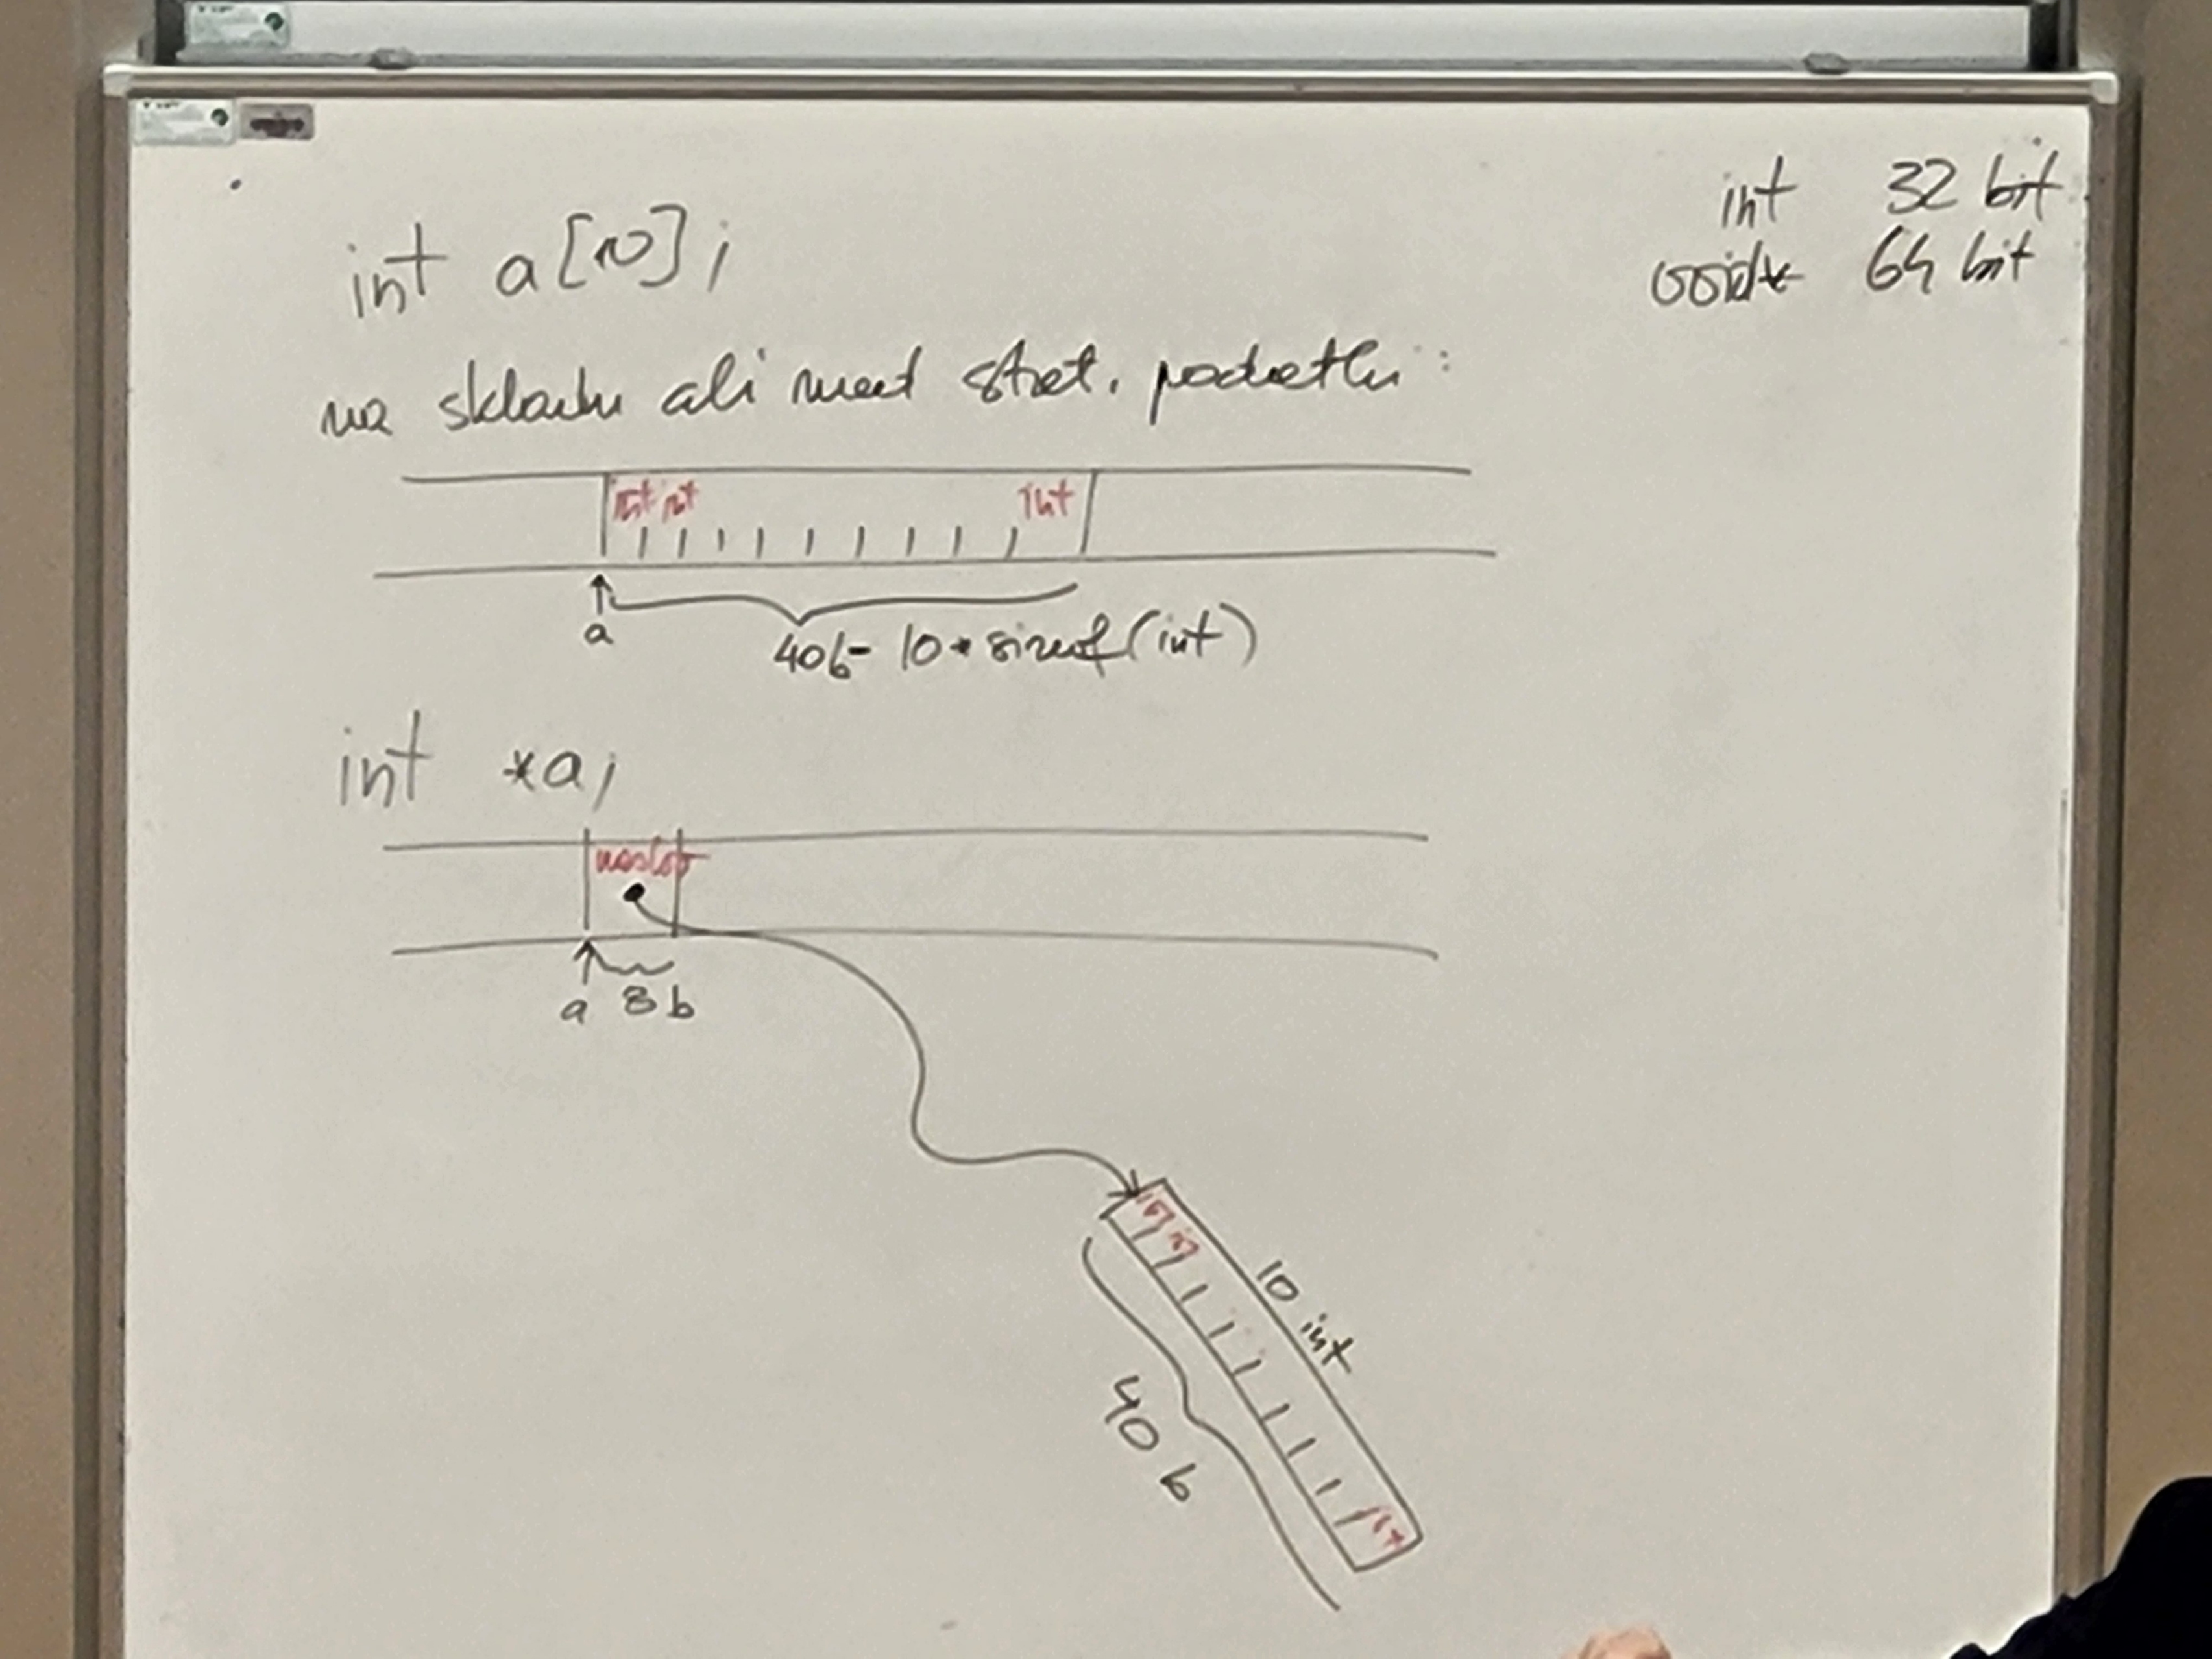 int 32 bit
void* 64 bit
int a[10];
na skladu ali med stat. podatki:
int int int
a
40b = 10 * sizeof(int)
int *a;
naslov
a 8b
int
10 int
40 b
int